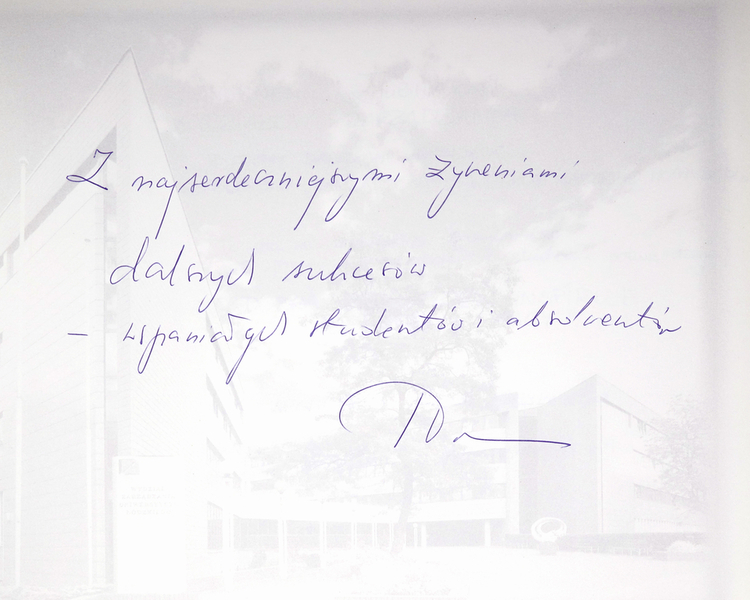 Z najserdeczniejszymi życzeniami
dalszych sukcesów
– wspaniałych studentów i absolwentów